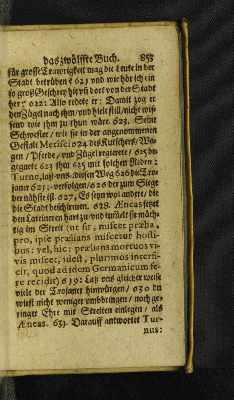 das zwölffte Buch. 853
für grosse Trawrigkeit mag die Leute in der
Stadt betrüben / 621 und wie hör ich ein
so groß Geschrey hie uñ dort von der Stadt
her: 622: Also redete er: Damit zog er
den Zügel nach ihm / und hielt still / nicht wis-
send wie ihm zu thun wäre. 623. Seine
Schwester / wie sie in der angenommenen
Gestalt Metisci 624 des Kutschers / Wa-
gen / Pferde / und Zügel regierete / 625 be-
gegnete 623 ihm 625 mit solchen Reden:
Turne, laß uns diesen Weg 626 die Tro-
janer 625; verfolgen / 626 der zum Siege
der nähste ist. 627, Es seyn wol andere / die
die Stadt beschirmen. 628. Æneas setzet
den Lateinern hart zu und tuṁelt sie mäch-
tig im Streit (ut sit, miscet prælia,
pro, ipse prælians miscetur hosti-
bus: vel, hic: prælians mortuos vi-
vis miscet, idest, plurimos interfi-
cit, quod ad idem Germanicum fe-
re recidit) 629: Laß uns gleicher weise
viele der Trojaner hinwürgen / 630 du
wirst nicht weniger umbbringen / noch ge-
ringer Ehre mit Streiten einlegen / als
Æneas. 631. Darauff antwortet Tur-
nus: